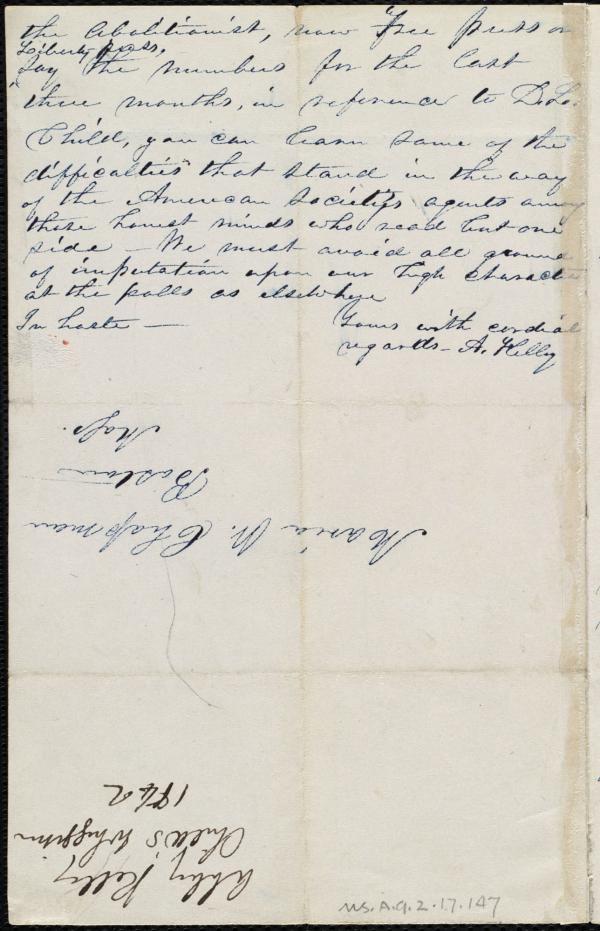 the Abolitionist, now "Free Press or
Liberty press,
say the numbers for the last
three months, in reference to D. L.
Child, you can learn some of the
difficulties that stand in the way
of the American Society's agents among
these honest minds who read but one
side — We must avoid all ground
of imputation upon our high character
at the polls as elsewhere
In haste —
Yours with cordial
regards — A. Kelley
Maria W. Chapman
Boston
Mass.
Abby Kelley
Child's Whiggism
1842
Ms.A.9.2.17.147